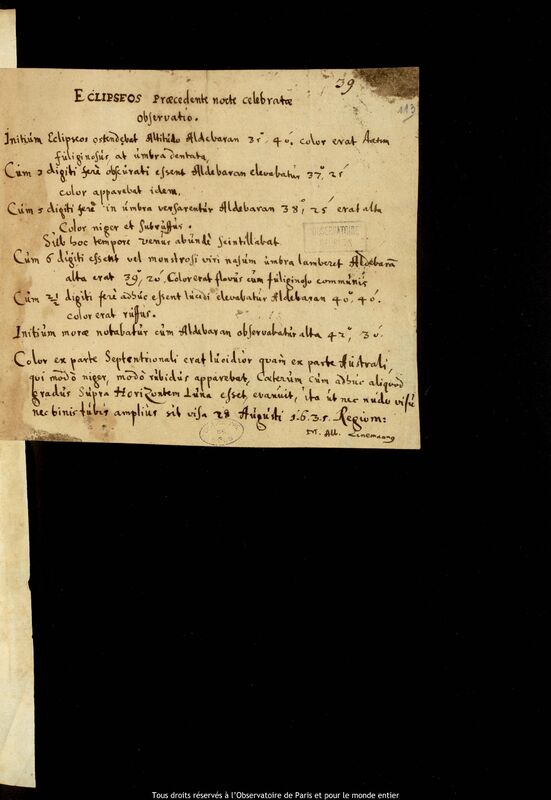 39
113
ECLIPSEOS Præcedente nocte celebratæ
observatio.
Initium Eclipseos ostendebat Altitudo Aldebaran 35° 40'. color erat
fuliginosus, at umbra dentata.
Cum 2 digiti ferè obscurati essent Aldebaran elevabatur 37° 25'
color apparebat idem.
Cum 5 digiti ferè in umbra versarentur Aldebaran 38° 25' erat alta
Color niger et Subruffus.
Sub hoc tempore Venus abundè Scintillabat
Cum 6 digiti essent vel monstrosi viri nasum umbra lamberet Aldebarã
alta erat 39° 20'. Color erat flavus cum fuliginoso communis
Cum digiti ferè adhuc essent lucidi elevabatur Aldebaran 40° 40'.
color erat ruffus.
Initium moræ notabatur cum Aldebaran observabatur alta 42° 30'.
Color ex parte Septentrionali erat lucidior quam ex parte Australi,
qui modò niger, modò rubidus apparebat, Cæterum cùm adhuc aliquod
gradus Supra Horizontem Luna esset, evanuit, ita ut nec nudo visu
nec binis tubis amplius sit visa 28 Augusti 1635. Regiom:
M. Alb. Linemann
OBSERVATOIRE
Tous droits réservés à l'Observatoire de Paris et pour le monde entier